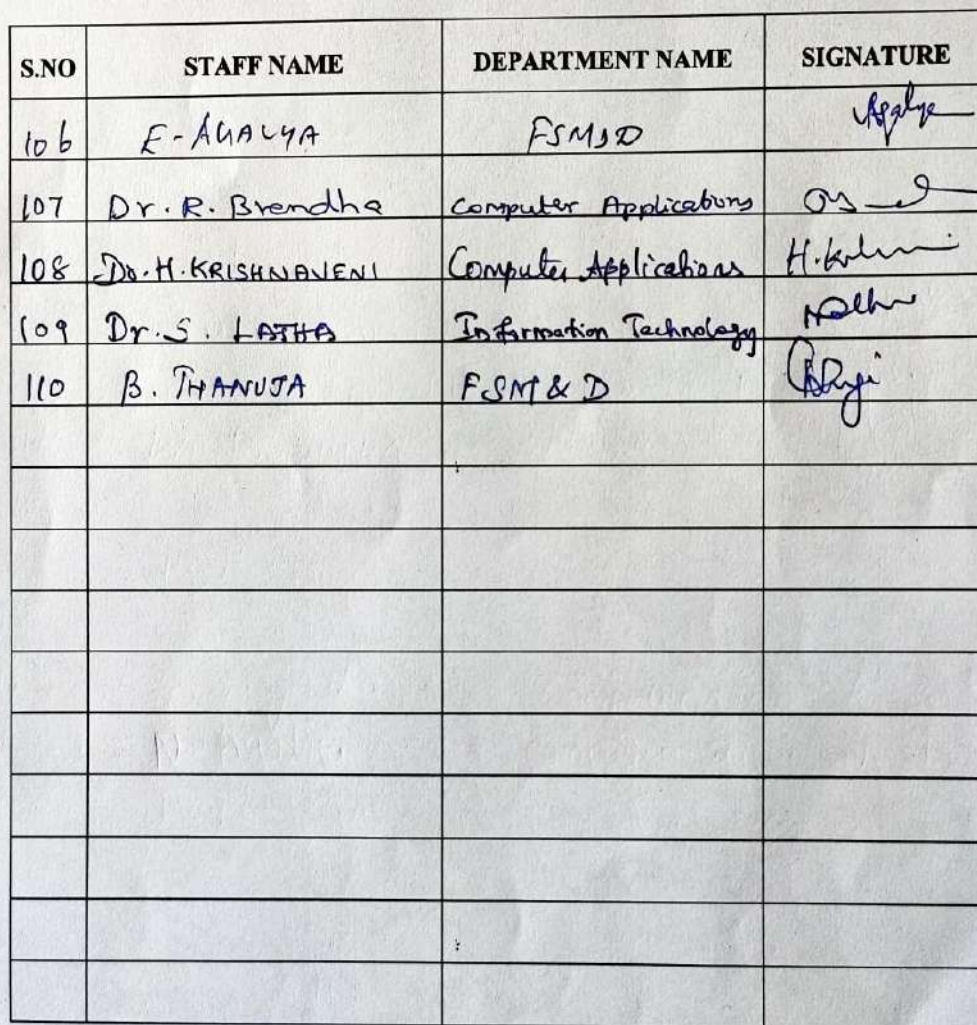 S.NO STAFF NAME DEPARTMENT NAME SIGNATURE
106 E-AGALYA FSM&D Agalya
107 Dr. R. Brendha Computer Applications
108 Dr. H. KRISHNAVENI Computer Applications
109 Dr. S. LATHA Information Technology
110 B. THANUJA FSM & D